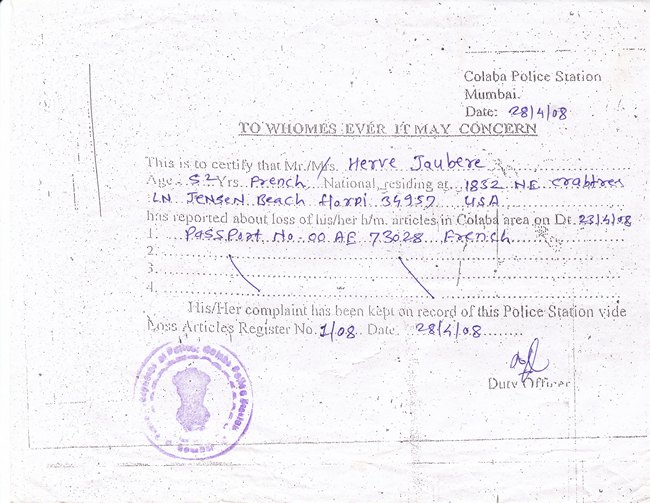 Colaba Police Station
Mumbai.
Date: 28/4/08
TO WHOMES EVER IT MAY CONCERN
This is to certify that Mr./Mrs. Herve Jaubere
Age. 52 Yrs. French National, residing at. 1832 N.E. crabtres
LN JENSEN Beach florDi 34957 USA
has reported about loss of his/her h/m. articles in Colaba area on Dt. 23/4/08
1. PASSPort No. 00 AE 73028 French
2.
3.
4.
His/Her complaint has been kept on record of this Police Station vide
Loss Articles Register No. 1/08. Date. 28/4/08
Duty Officer
of Police, Colaba Police Station